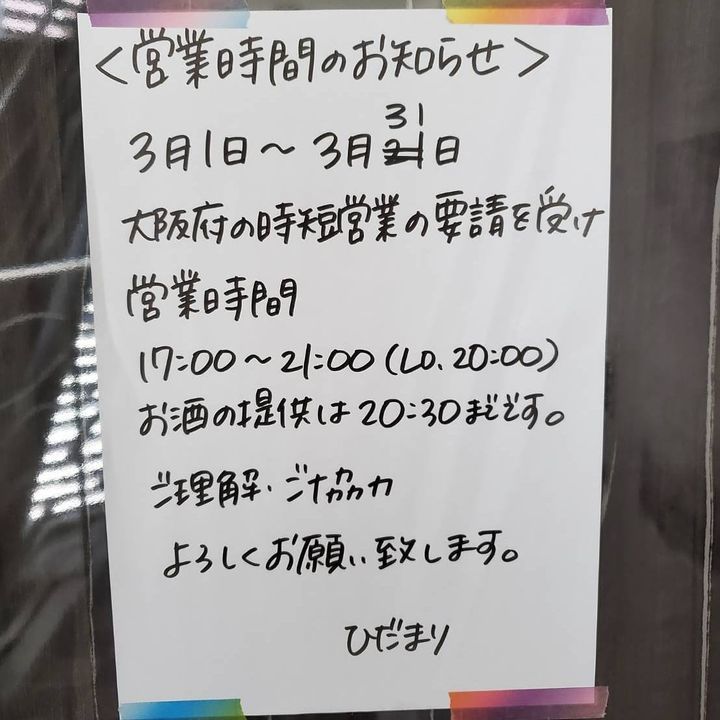 <営業時間のお知らせ>
3月1日～3月31日
大阪府の時短営業の要請を受け
営業時間
17:00～21:00(LO.20:00)
お酒の提供は20:30までです。
ご理解・ご協力
よろしくお願い致します。
ひだまり